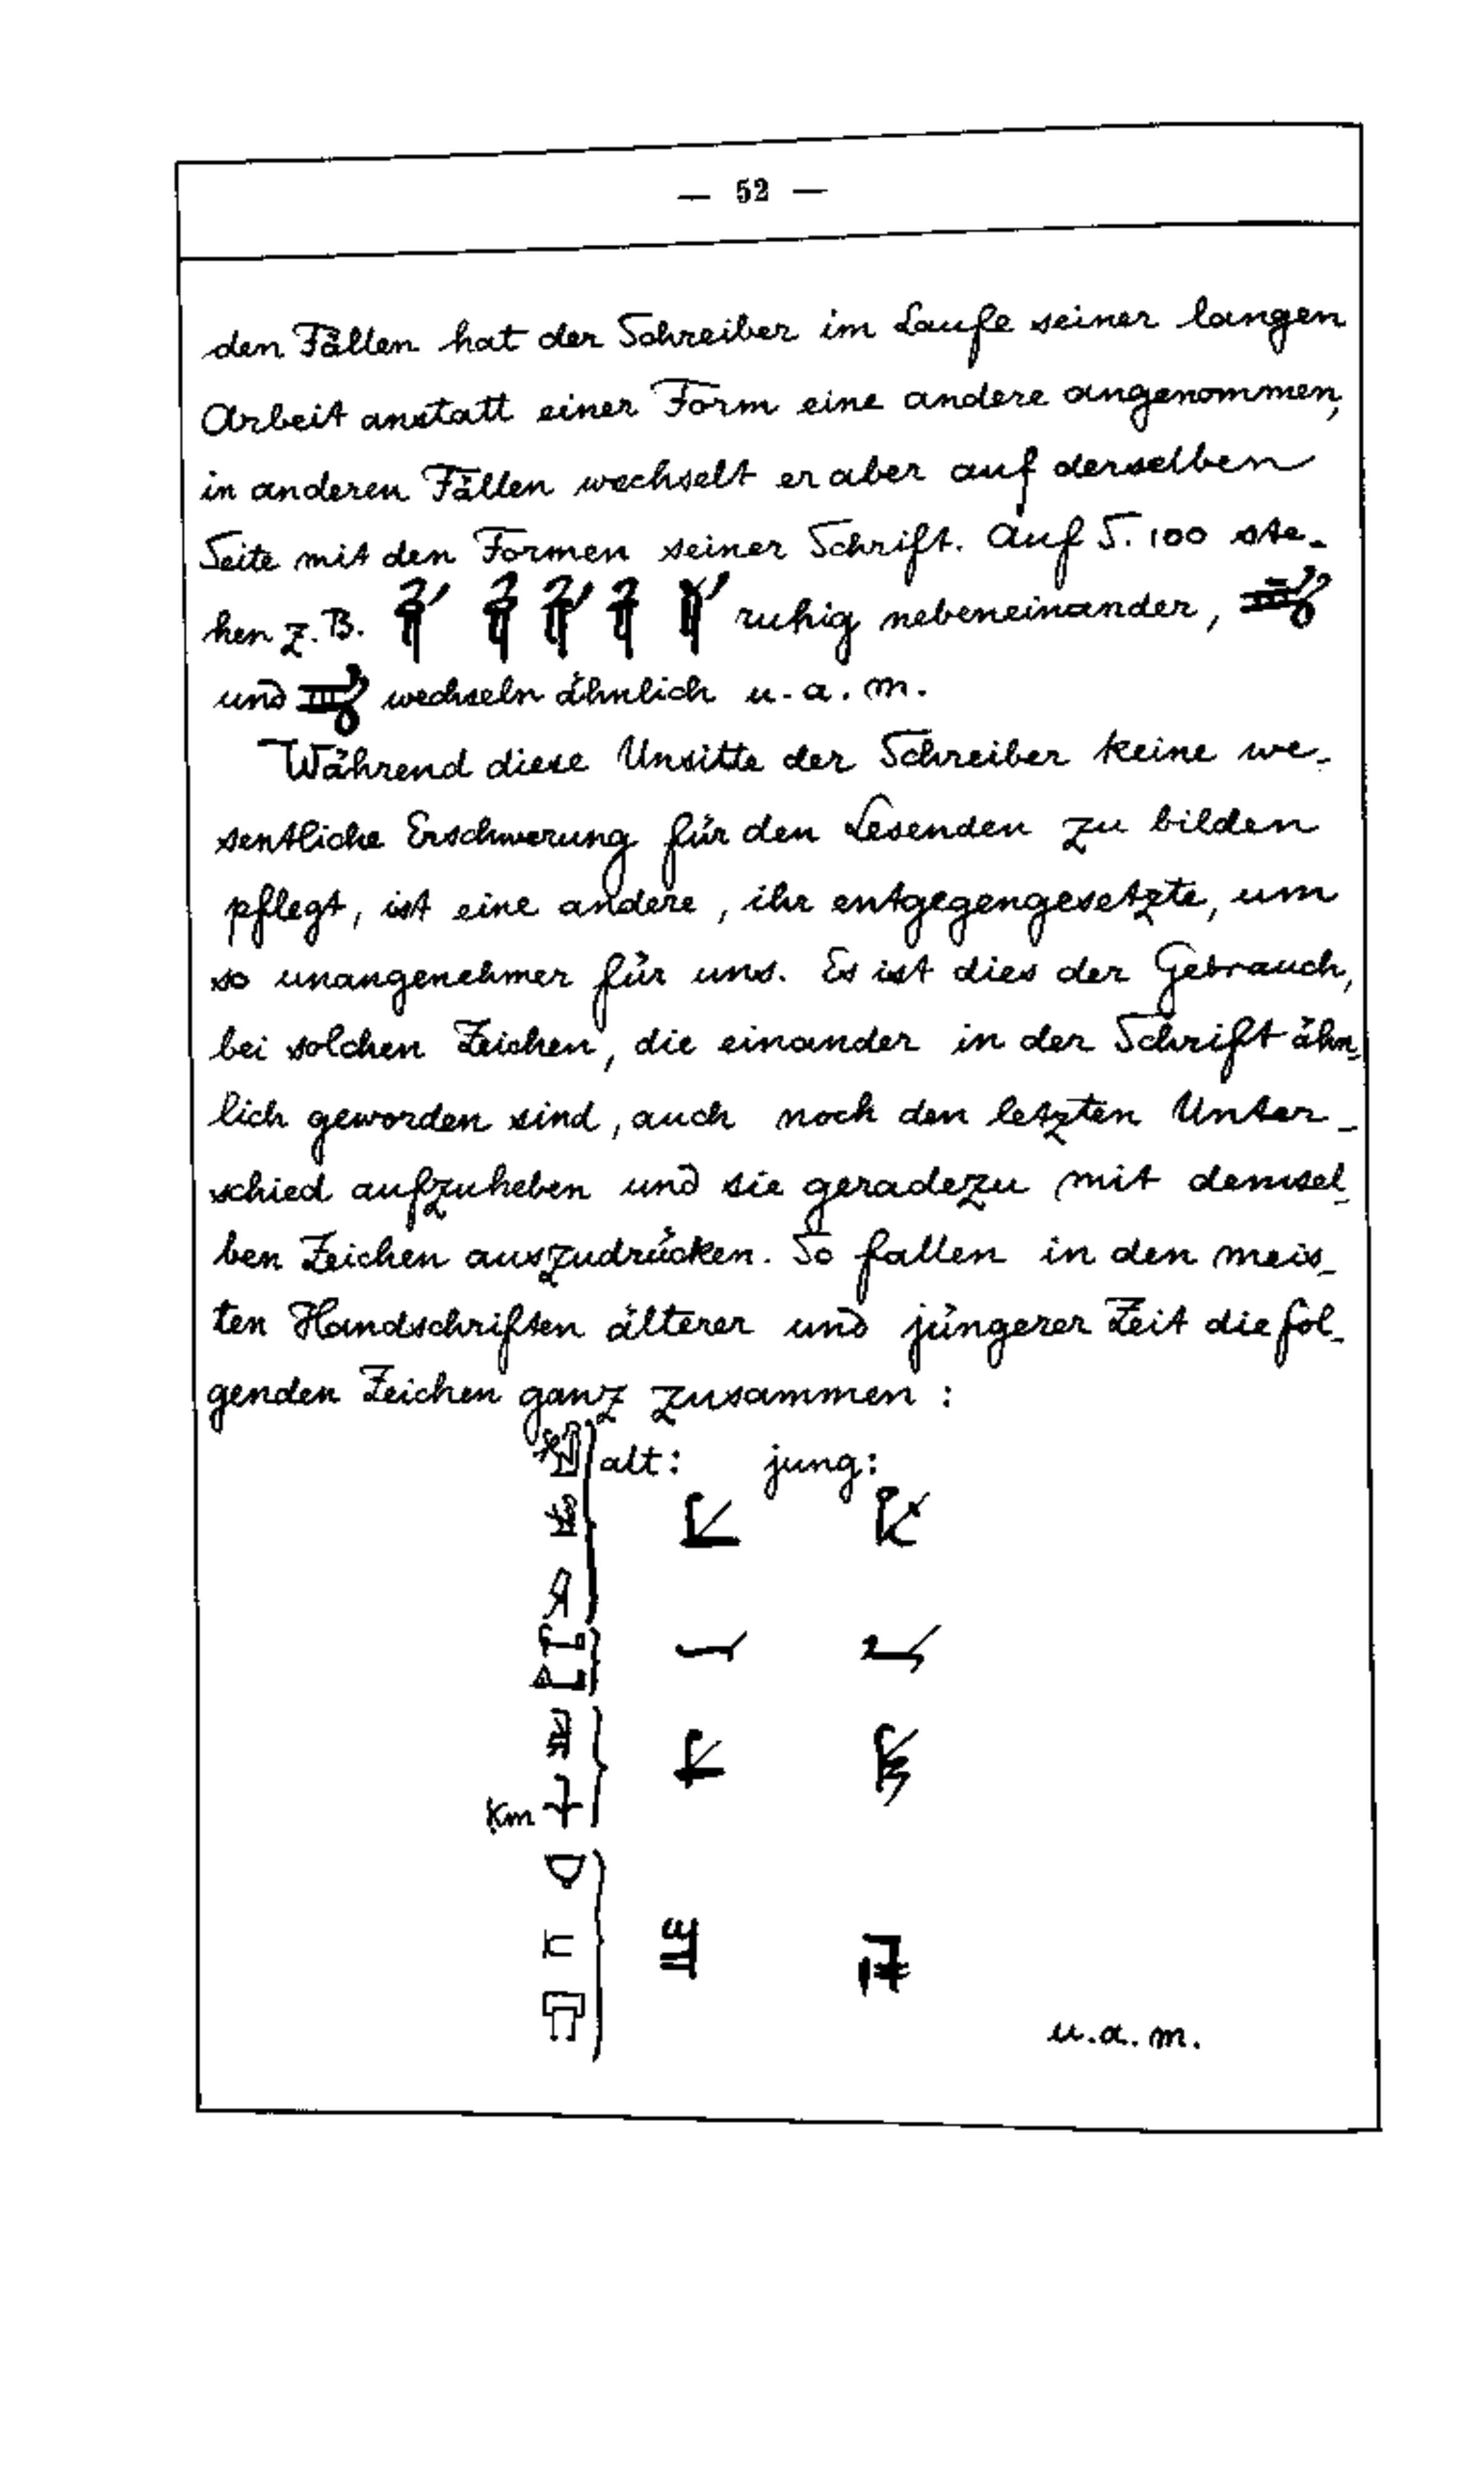 — 52 —
den Fällen hat der Schreiber im Laufe seiner langen
Arbeit anstatt einer Form eine andere angenommen,
in anderen Fällen wechselt er aber auf derselben
Seite mit den Formen seiner Schrift. Auf S. 100 ste-
hen z. B. ruhig nebeneinander,
und wechseln ähnlich u. a. m.
Während diese Unsitte der Schreiber keine we-
sentliche Erschwerung für den Lesenden zu bilden
pflegt, ist eine andere, ihr entgegengesetzte, um
so unangenehmer für uns. Es ist dies der Gebrauch,
bei solchen Zeichen, die einander in der Schrift ähn-
lich geworden sind, auch noch den letzten Unter-
schied aufzuheben und sie geradezu mit demsel-
ben Zeichen auszudrücken. So fallen in den meis-
ten Handschriften älterer und jüngerer Zeit die fol-
genden Zeichen ganz zusammen:
alt: jung:
Km
u. a. m.